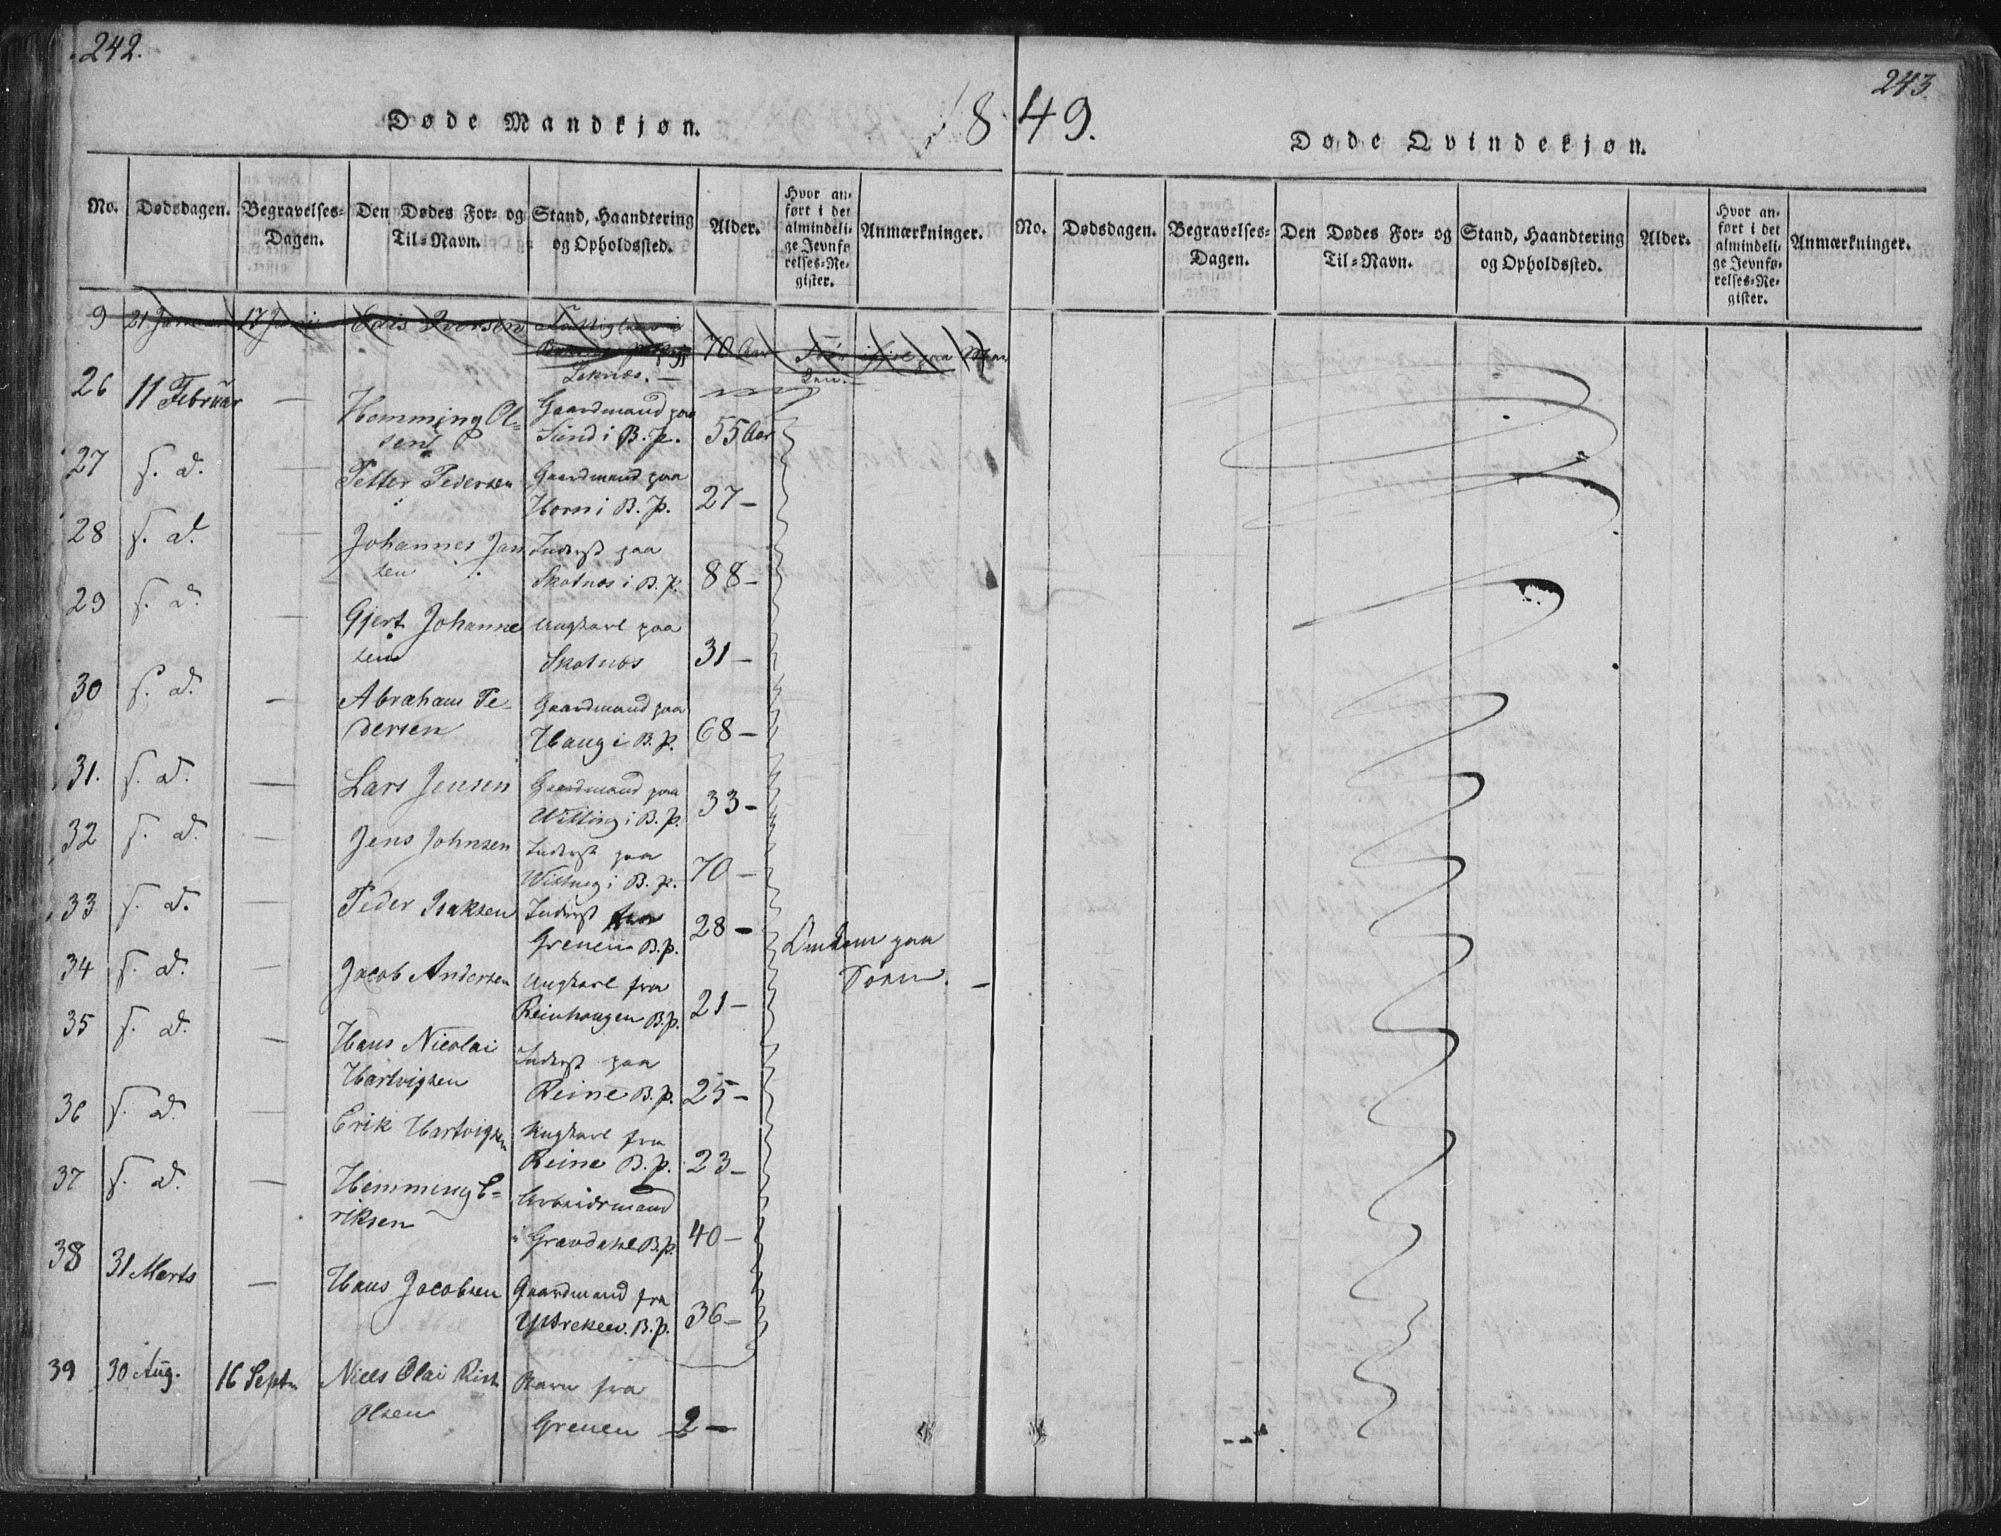 242.
243.
1849.
Døde Mandkjøn.
Døde Qvindekjøn.
No. Dødsdagen. Begravelses-Dagen. Den Dødes For- og Til-Navn. Stand, Haandtering og Opholdssted. Alder. Hvor anført i det almindelige Jevnførelses-Register. Anmærkninger.
No. Dødsdagen. Begravelses-Dagen. Den Dødes For- og Til-Navn. Stand, Haandtering og Opholdssted. Alder. Hvor anført i det almindelige Jevnførelses-Register. Anmærkninger.
9 21 Januar 17 Juni Iversen 70 Aar
Leknes. —
26 11 Februar — Hemming Ol- Gaardmand paa
sen Sund i B. p. 55 Aar
27 s. d. — Petter Pedersen Gaardmand paa
Horn i B. p. 27 —
28 s. d. — Johannes Jan Inderst paa
sen Skotnos i B. p. 88 —
29 s. d. — Gjert Johanne Ungkarl paa
sen Skotnos 31 —
30 s. d. — Abraham Pe- Gaardmand paa
dersen Haug i B. p. 68 —
31. s. d. — Lars Jensen Gaardmand paa
Witting i B. p. 33 —
32 s. d. — Jens Johnsen Inderst paa
Witting i B. p. 70 —
33 s. d. — Peder Isaksen Inderst fra
Grenen B. p. 28 — Omkom paa
34 s. d. — Jacob Andersen Ungkarl fra Søen. —
Reinhaugen B. p. 21 —
35 s. d. — Hans Nicolai Inderst paa
Hartvigsen Reine B. p. 25 —
36 s. d. — Erik Hartvigsen Ungkarl fra
Reine B. p. 23 —
37 s. d. — Hemming E- Arbeidsmand
riksen i Gravdahl B. p. 40 —
38 31 Marts — Hans Jacobsen Gaardmand fra
B. p. 36 —
39 30 Aug. 16 Septr Niels Olai Barn fra
Olsen Grenen 2 —